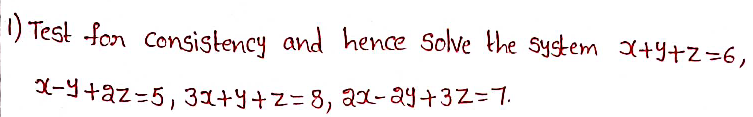 1) Test for consistency and hence solve the system x+y+z=6,
x-y+2z=5, 3x+y+z=8, 2x-2y+3z=7.